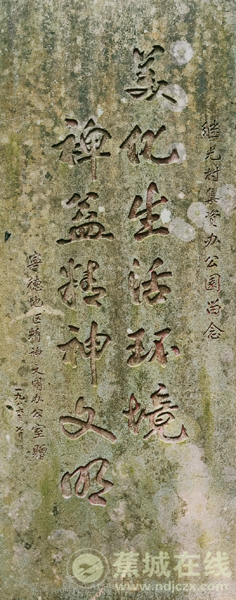 继光村集资办公园留念
美化生活环境
裨益精神文明
宁德地区精神文明办公室赠
蕉城在线
www.ndjczx.com